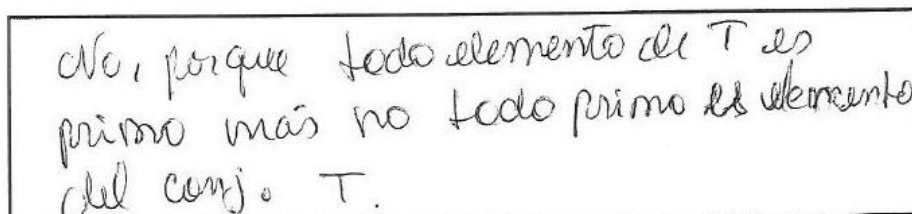 No, porque todo elemento de T es
primo más no todo primo es elemento
del conj. T.